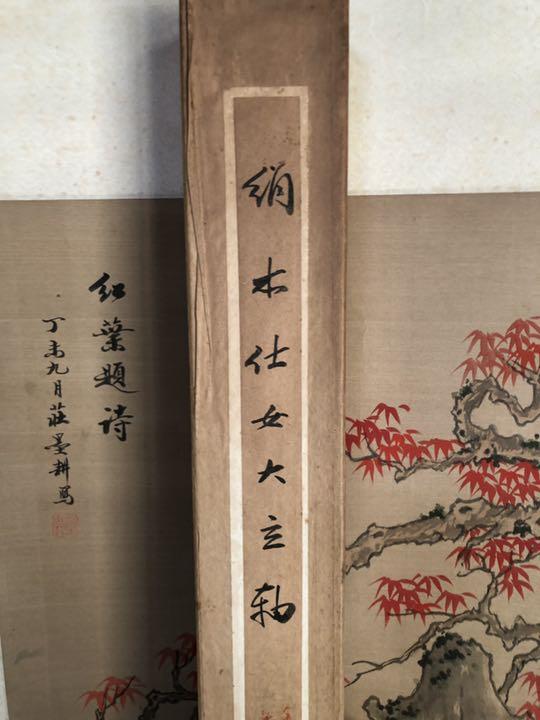 絹本仕女大立軸
红葉題诗
丁未九月莊墨耕寫